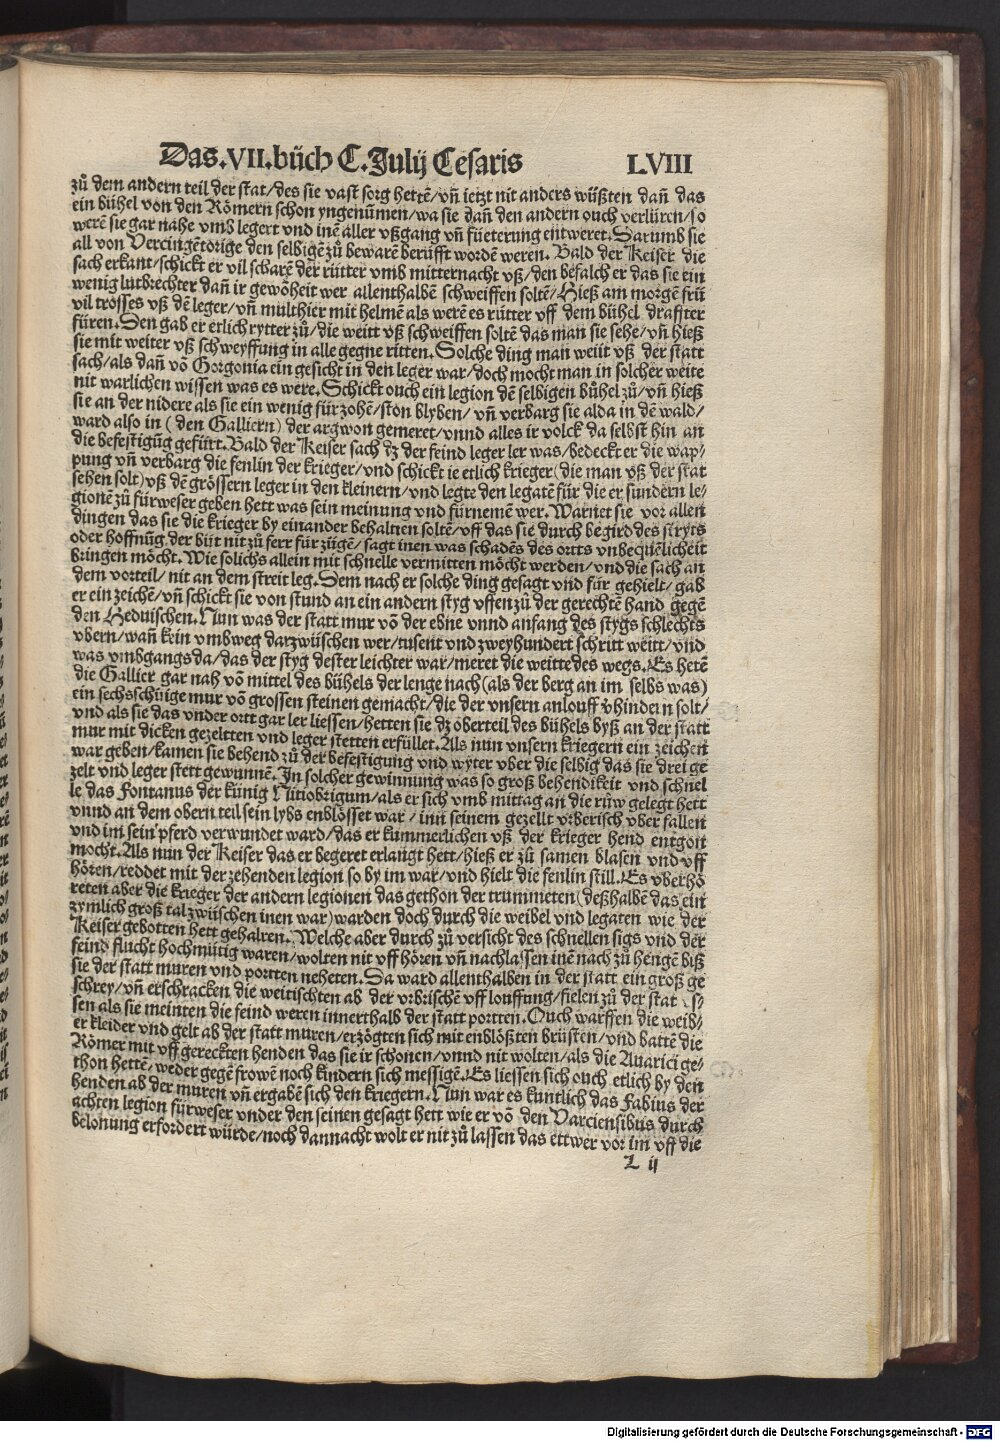 Das.VII.bůch C.Julij Cesaris LVIII
zů dem andern teil der stat/des sie vast sorg hettē/vñ ietzt nit anders wüßten dañ das
ein bühel von den Römern schon yngenūmen/wa sie dañ den andern ouch verlüren/so
werē sie gar nahe vmb legert vnd inē aller vßgang vñ füeterung entweret. Darumb sie
all von Vercingētorige den selbigē zů bewarē berüfft wordē weren. Bald der Keiser die
sach erkant/schickt er vil scharē der rütter vmb mitternacht vß/den befalch er das sie ein
wenig lutbrechter dañ ir gewōheit wer allenthalbē schweiffen soltē/Hieß am morgē frü
vil trosses vß dē leger/vñ multhier mit helmē als werē es rütter vff dem bühel draffter
füren. Den gab er etlich rytter zů/die weitt vß schweiffen soltē das man sie sehe/vñ hieß
sie mit weiter vß schweyffung in alle gegne ritten. Solche ding man weiit vß der statt
sach/als dañ vō Gorgonia ein gesicht in den leger war/doch mocht man in solcher weite
nit warlichen wissen was es were. Schickt ouch ein legion dē selbigen bůhel zů/vñ hieß
sie an der nidere als sie ein wenig für zohē/ston blyben/ vñ verbarg sie alda in dē wald/
ward also in ( den Galliern) der argwon gemeret/vnnd alles ir volck da selbst hin an
die befestigūg gefürt. Bald der Keiser sach dz der feind leger ler was/bedeckt er die wap/
pung vñ verbarg die fenlin der krieger/vnd schickt ie etlich krieger(die man vß der stat
sehen solt)vß dē grössern leger in den kleinern/vnd legte den legatē für die er sundern le/
gionē zů fürweser geben hett was sein meinung vnd fürnemē wer. Warnet sie vor allen
dingen das sie die krieger by einander behaltten soltē/vff das sie durch begird des stryts
oder hoffnūg der büt nit zů ferr für zügē/ sagt inen was schadēs des ortts vnbequēlicheit
bringen möcht. Wie solichs allein mit schnelle vermitten möcht werden/vnd die sach an
dem vorteil/nit an dem streit leg. Dem nach er solche ding gesagt vnd für gehielt/ gab
er ein zeichē/vñ schickt sie von stund an ein andern styg vffen zů der gerechtē hand gegē
den Heduischen. Nun was der statt mur vō der ebne vnnd anfang des stygs schlechts
vbern/wañ kein vmbweg darzwüschen wer/tusent vnd zweyhundert schritt weitt/vnd
was vmbgangs da/das der styg dester leichter war/meret die weitte des wegs. Es hetē
die Gallier gar nah vō mittel des bühels der lenge nach(als der berg an im selbs was)
ein sechsschüige mur vō grossen steinen gemacht/die der vnsern anlouff vhindern solt/
vnd als sie das vnder ortt gar ler liessen/hetten sie dz oberteil des bühels byß an der statt
mur mit dicken gezeltten vnd leger stetten erfüllet. Als nun vnsern kriegern ein zeichen
war geben/kamen sie behend zů der befestigung vnd wyter vber die selbig das sie drei ge
zelt vnd leger stett gewunnē. In solcher gewinnung was so groß behendikeit vnd schnel
le das Fontanus der künig Nitiobrigum/als er sich vmb mittag an die rüw gelegt hett
vnnd an dem obern teil sein lybs enblösset war / inn seinem gezellt vrberisch vber fallen
vnd im sein pferd verwundet ward/das er kummerlichen vß der krieger hend entgon
mocht. Als nun der Keiser das er begeret erlangt hett/hieß er zů samen blasen vnd vff
hören/reddet mit der zehenden legion so by im war/vnd hielt die fenlin still. Es vberhö
reten aber die krieger der andern legionen das gethon der trummeten(deßhalbē das ein
zymlich groß tal zwüschen inen war)warden doch durch die weibel vnd legaten wie der
Keiser gebotten hett gehalten. Welche aber durch zů versicht des schnellen sigs vnd der
feind flucht hochmütig waren/wolten nit vff hören vñ nachlassen inē nach zů hengē biß
sie der statt muren vnd portten neheten. Da ward allenthalben in der statt ein groß ge
schrey/vñ erschracken die weitischten ab der vrbrischē vff louffung/fielen zů der stat
sen als sie meinten die feind weren innerthalb der statt portten. Ouch warffen die weib/
er kleider vnd gelt ab der statt muren/erzögten sich mit enblößten brüsten/vnd battē die
Römer mit vff gereckten henden das sie ir schonen/vnnd nit wolten/als die Auarici ge/
thon hettē/weder gegē frowē noch kindern sich messigē. Es liessen sich ouch etlich by den
henden ab der muren vñ ergabē sich den kriegern. Nun war es kuntlich das Fabius der
achten legion fürweser vnder den seinen gesagt hett wie er vō den Varciensibus durch
belonung erfordert würde/noch dannacht wolt er nit zů lassen das ettwer vor im vff die
L ij
Digitalisierung gefördert durch die Deutsche Forschungsgemeinschaft - DFG